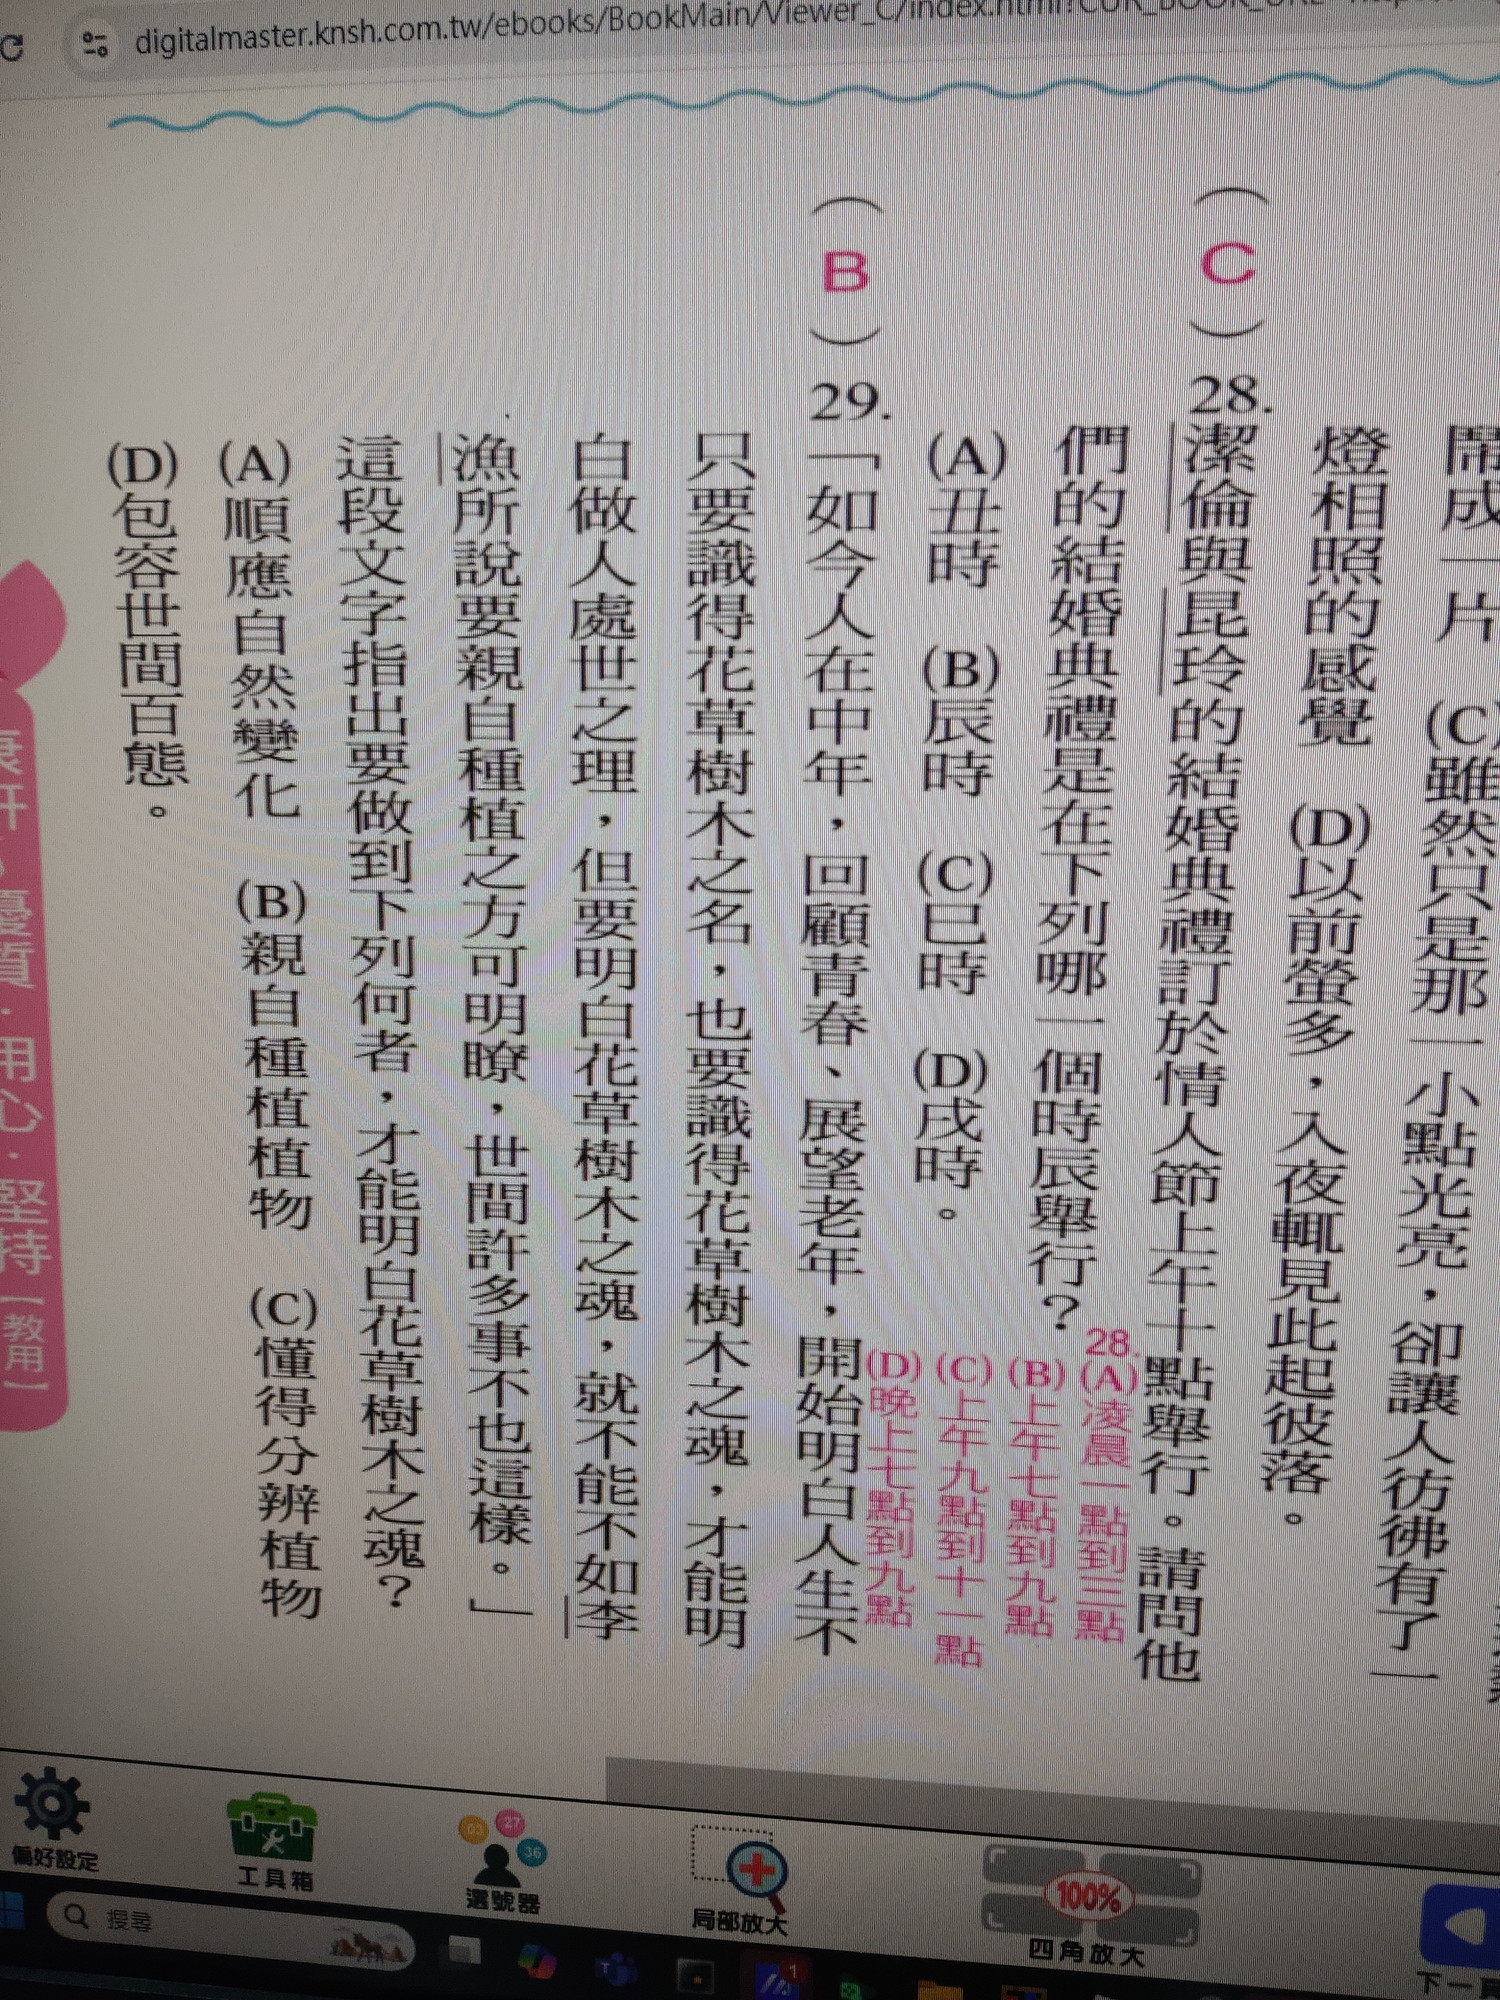 digitalmaster.knsh.com.tw/ebooks/BookMain/Viewer_C/index.html?CUR_BOOK_URL
鬧成一片 (C)雖然只是那一小點光亮，卻讓人彷彿有了一
燈相照的感覺 (D)以前螢多，入夜輒見此起彼落。
（C）28.潔倫與昆玲的結婚典禮訂於情人節上午十點舉行。請問他
們的結婚典禮是在下列哪一個時辰舉行？
(A)丑時 (B)辰時 (C)巳時 (D)戌時。
28.(A)凌晨一點到三點
(B)上午七點到九點
(C)上午九點到十一點
(D)晚上七點到九點
（B）29.「如今人在中年，回顧青春、展望老年，開始明白人生不
只要識得花草樹木之名，也要識得花草樹木之魂，才能明
白做人處世之理，但要明白花草樹木之魂，就不能不如李
漁所說要親自種植之方可明瞭，世間許多事不也這樣。」
這段文字指出要做到下列何者，才能明白花草樹木之魂？
(A)順應自然變化 (B)親自種植植物 (C)懂得分辨植物
(D)包容世間百態。
優質·用心·堅持【教用】
偏好設定
工具箱
03
27
36
選號器
局部放大
100%
四角放大
下一頁
搜尋
1